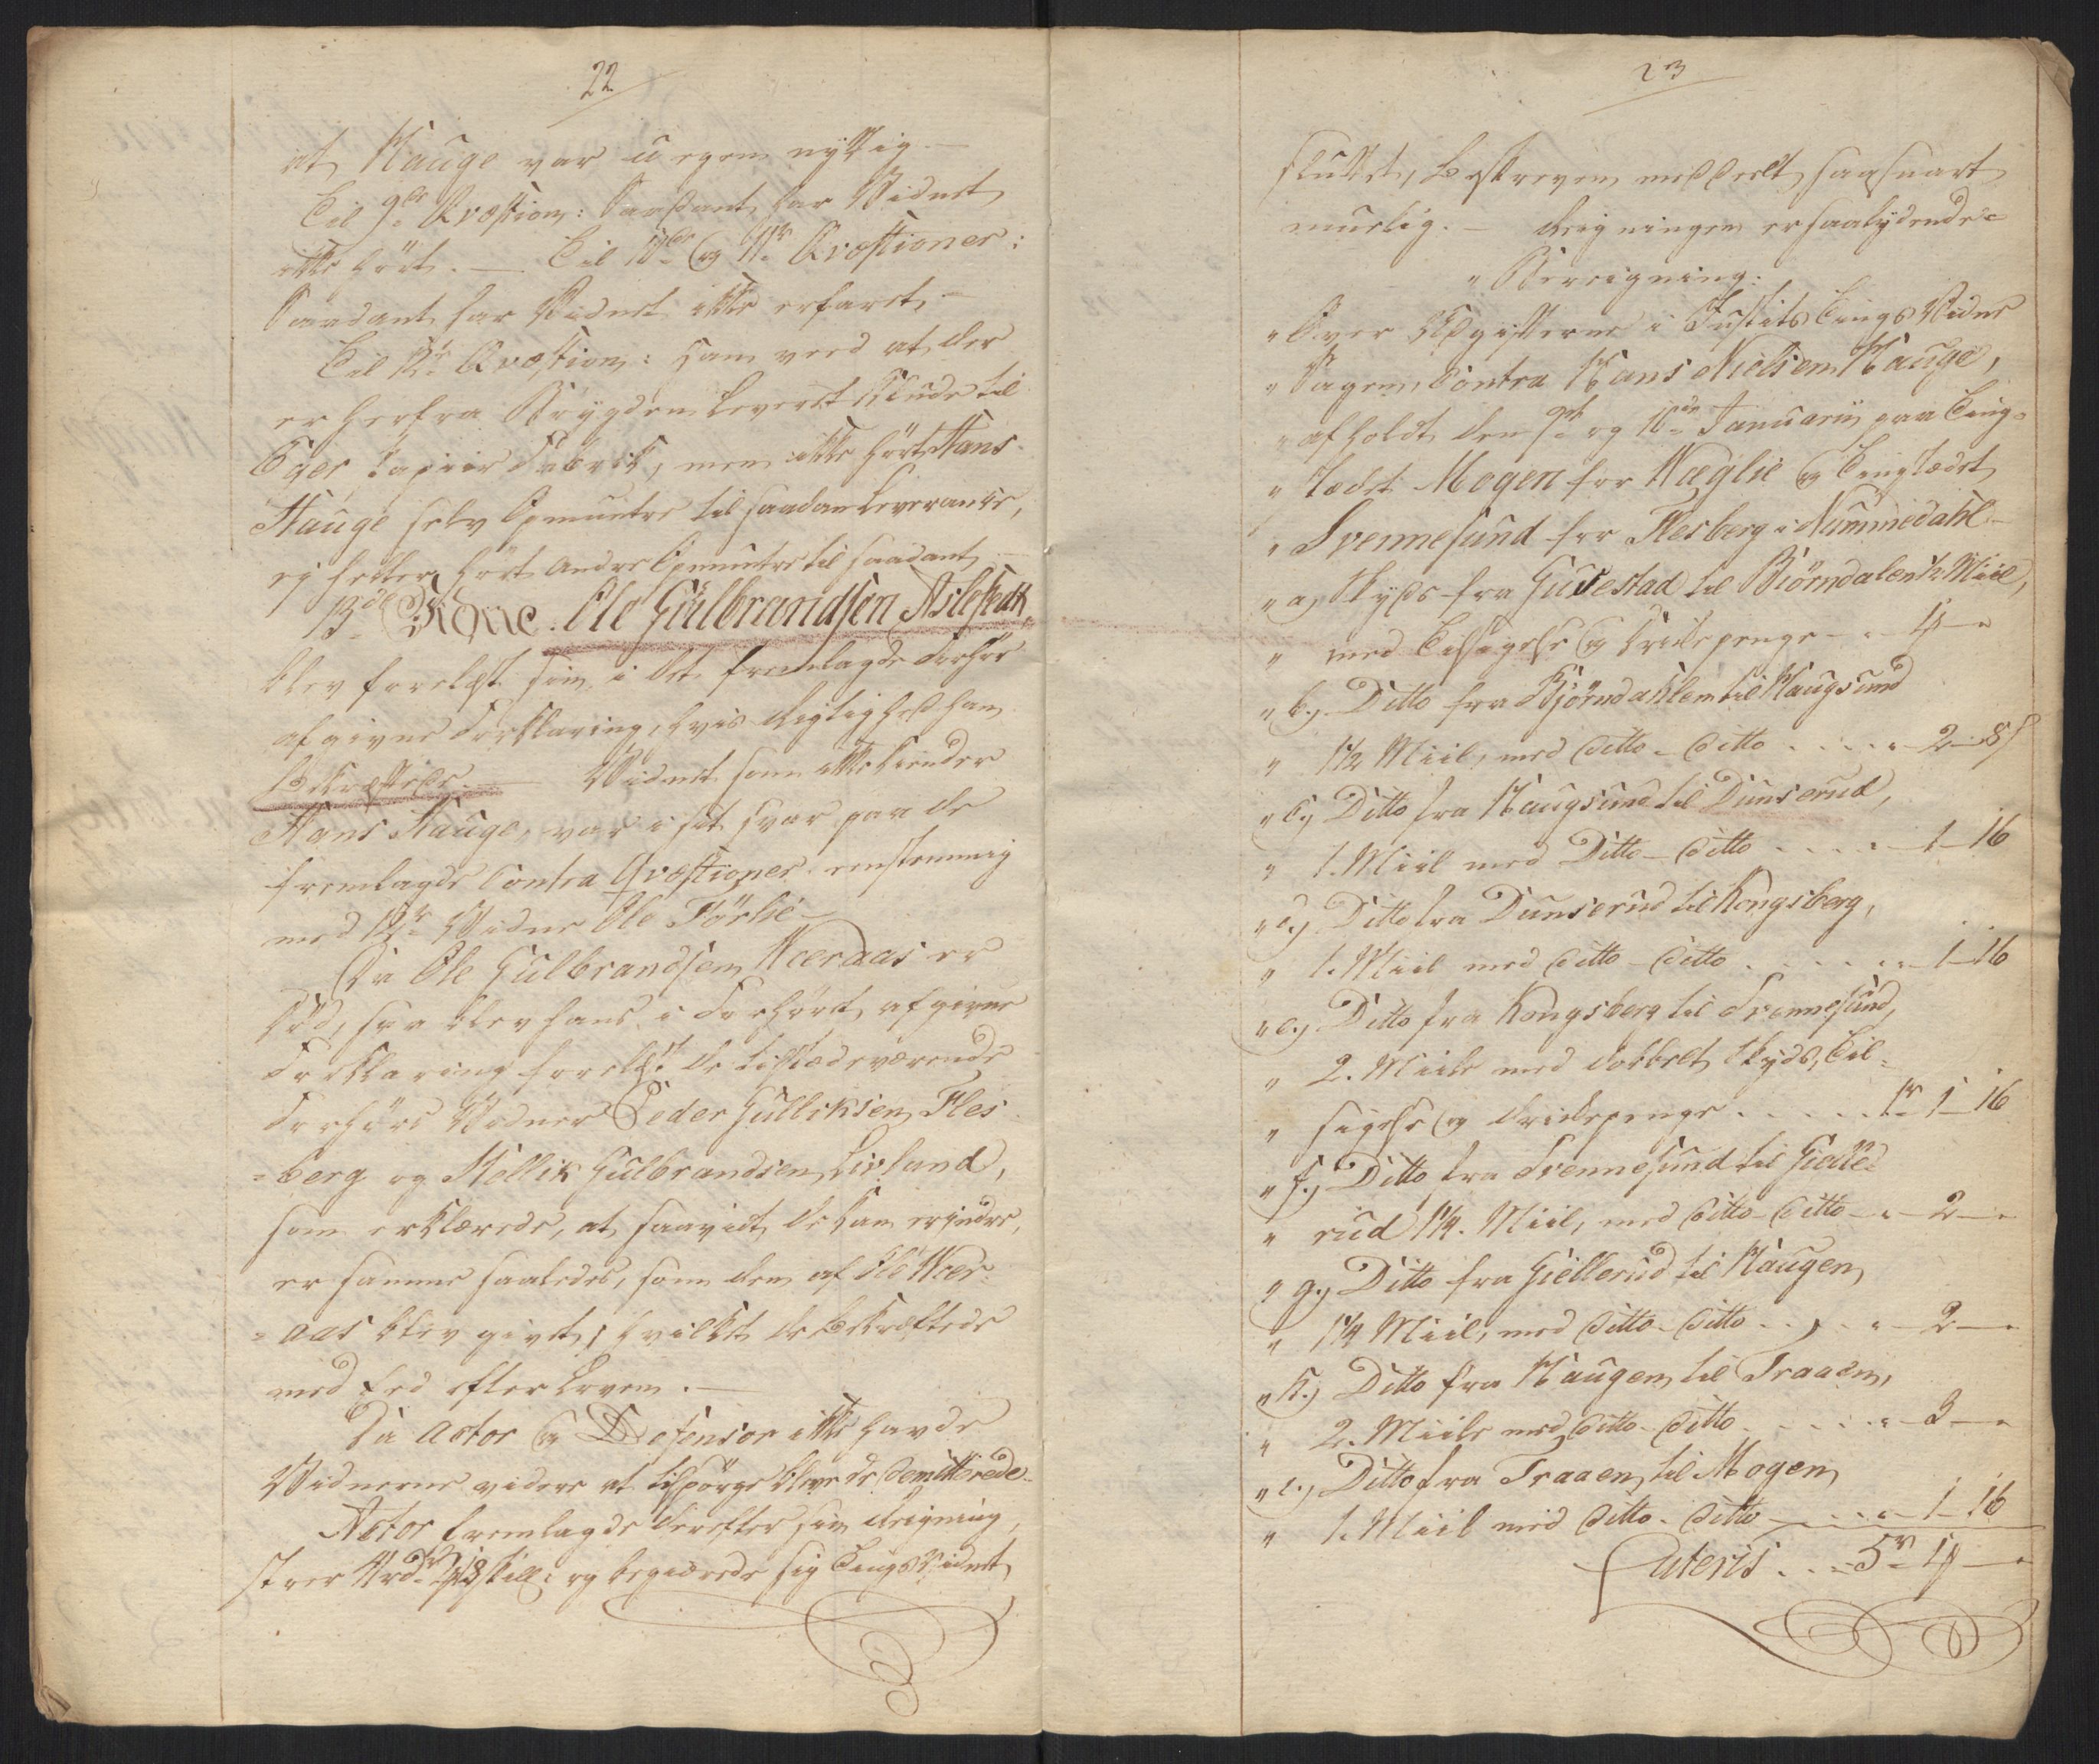 22
at Hauge var uegennyttig. —
Til 9de Qvæstion: Saadant har Vidnet
ikke hørt. — Til 10de og 11te Qvæstioner:
Saadant har Vidnet ikke erfaret. —
Til 12te Qvæstion: Han veed at der
er herfra Bøygden leveret Klude til
Eger Papiir Fabrik, men ikke hørt Hans
Hauge selv opmuntre til saadan Leverance,
ej heller hørt andre opmuntre til saadant —
13de Vidne. Ole Gülbrandsen Aslefedt,
blev forelæst sin i det fremlagde Forhør
afgivne Forklaring, hvis Rigtighed han
bekræftede. — Vidnet som ikke kiender
Hans Hauge, var i sit svar paa de
fremlagde Contra Qvæstioner eenstemmig
med 12te Vidne OleFørlie —
Da Ole Gulbrandsen Weeraas er
død, saa blev hans i Forhøret afgivne
Forklaring forelæst de tilstædeværende
Forhørs Vidner Peder Gulliksen Fles
=berg og Kellik Gulbrandsen Livland,
som erklærede, at saavidt de kan erindre,
er samme saaledes, som den af Ole Weer=
=aas blev givet, hvilket de bekræftede
med Eed efter Loven. —
Da Actor og Defensor ikke havde
Vidnerne videre at tilspørge bleve de demitterede
Actor fremlagde derefter sin Reigning,
stor 4rd 18 skill: og begiærede sig Tingsvidnet
23
sluttet, beskreven meddeelt saasnart
muelig. — Reigningen er saalydende =
" Bereigning:
" Over Udgifterne i Justits Tings Vidne
" Sagen Contra Hans Nielsen Hauge,
" afholdt den 9de og 10de Januarii paa Ting=
" stædet Mogen for Wæglie og Tingstædet
" Svennesund for Flesberg i Nummedahl —
" a, Skyds fra Gusestad til Biörndalen ½ Miil,
" med Tilsigelse og Drikkepenge — " 4 — "
" b.) Ditto fra Bjørndahlen til Haugsund
" 1½ Miil, med Ditto - Ditto . . . . " 2 — 8 s
" c.) Ditto fra Haugsund til Dunserud,
" 1. Miil med Ditto - Ditto . . . . " 1 — 16
" d.) Ditto fra Dunserud til Kongsberg,
" 1. Miil med Ditto - Ditto . . . . " 1 — 16
" e.) Ditto fra Kongsberg til Svennesund,
" 2. Miile med dobbelt Skyds, Til=
" sigelse og Drikkepenge . . . . . 1r 1 — 16
" f.) Ditto fra Svennesund til Gielle=
" rud 1¼. Miil, med Ditto - Ditto — " — 2 — "
" g.) Ditto fra Giellerud til Haugen,
" 1¼ Miil, med Ditto - Ditto . . . " — 2 — "
" h.) Ditto fra Haugen til Traaen,
" 2. Miile med Ditto - Ditto . . . . " — 3 — "
" i.) Ditto fra Traaen til Mogen
" 1. Miil med Ditto - Ditto — . . " — 1 — 16
Lateris . . . 5r 4 — "